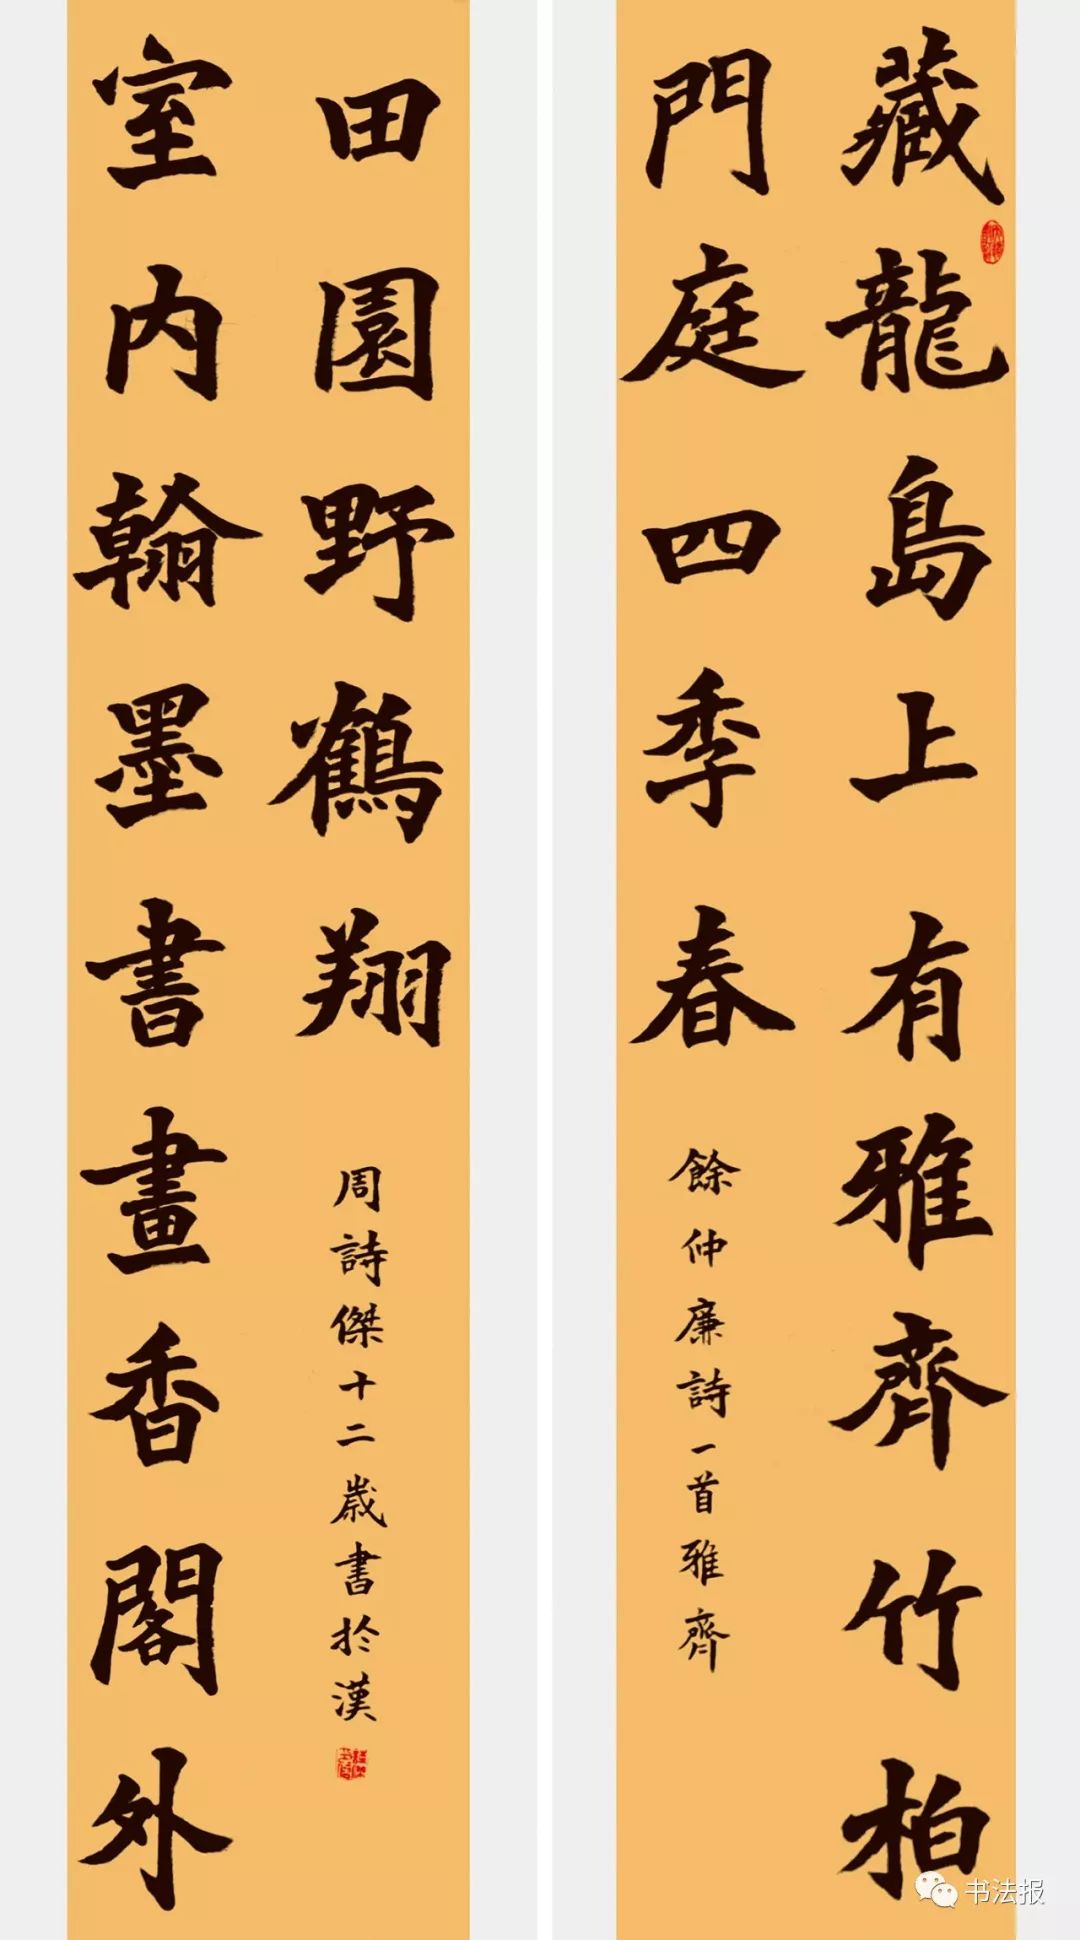 藏龍島上有雅齊竹柏
門庭四季春
餘仲廉詩一首雅齊
室内翰墨書畫香閣外
田園野鶴翔
周詩傑十二歲書於漢
书法报